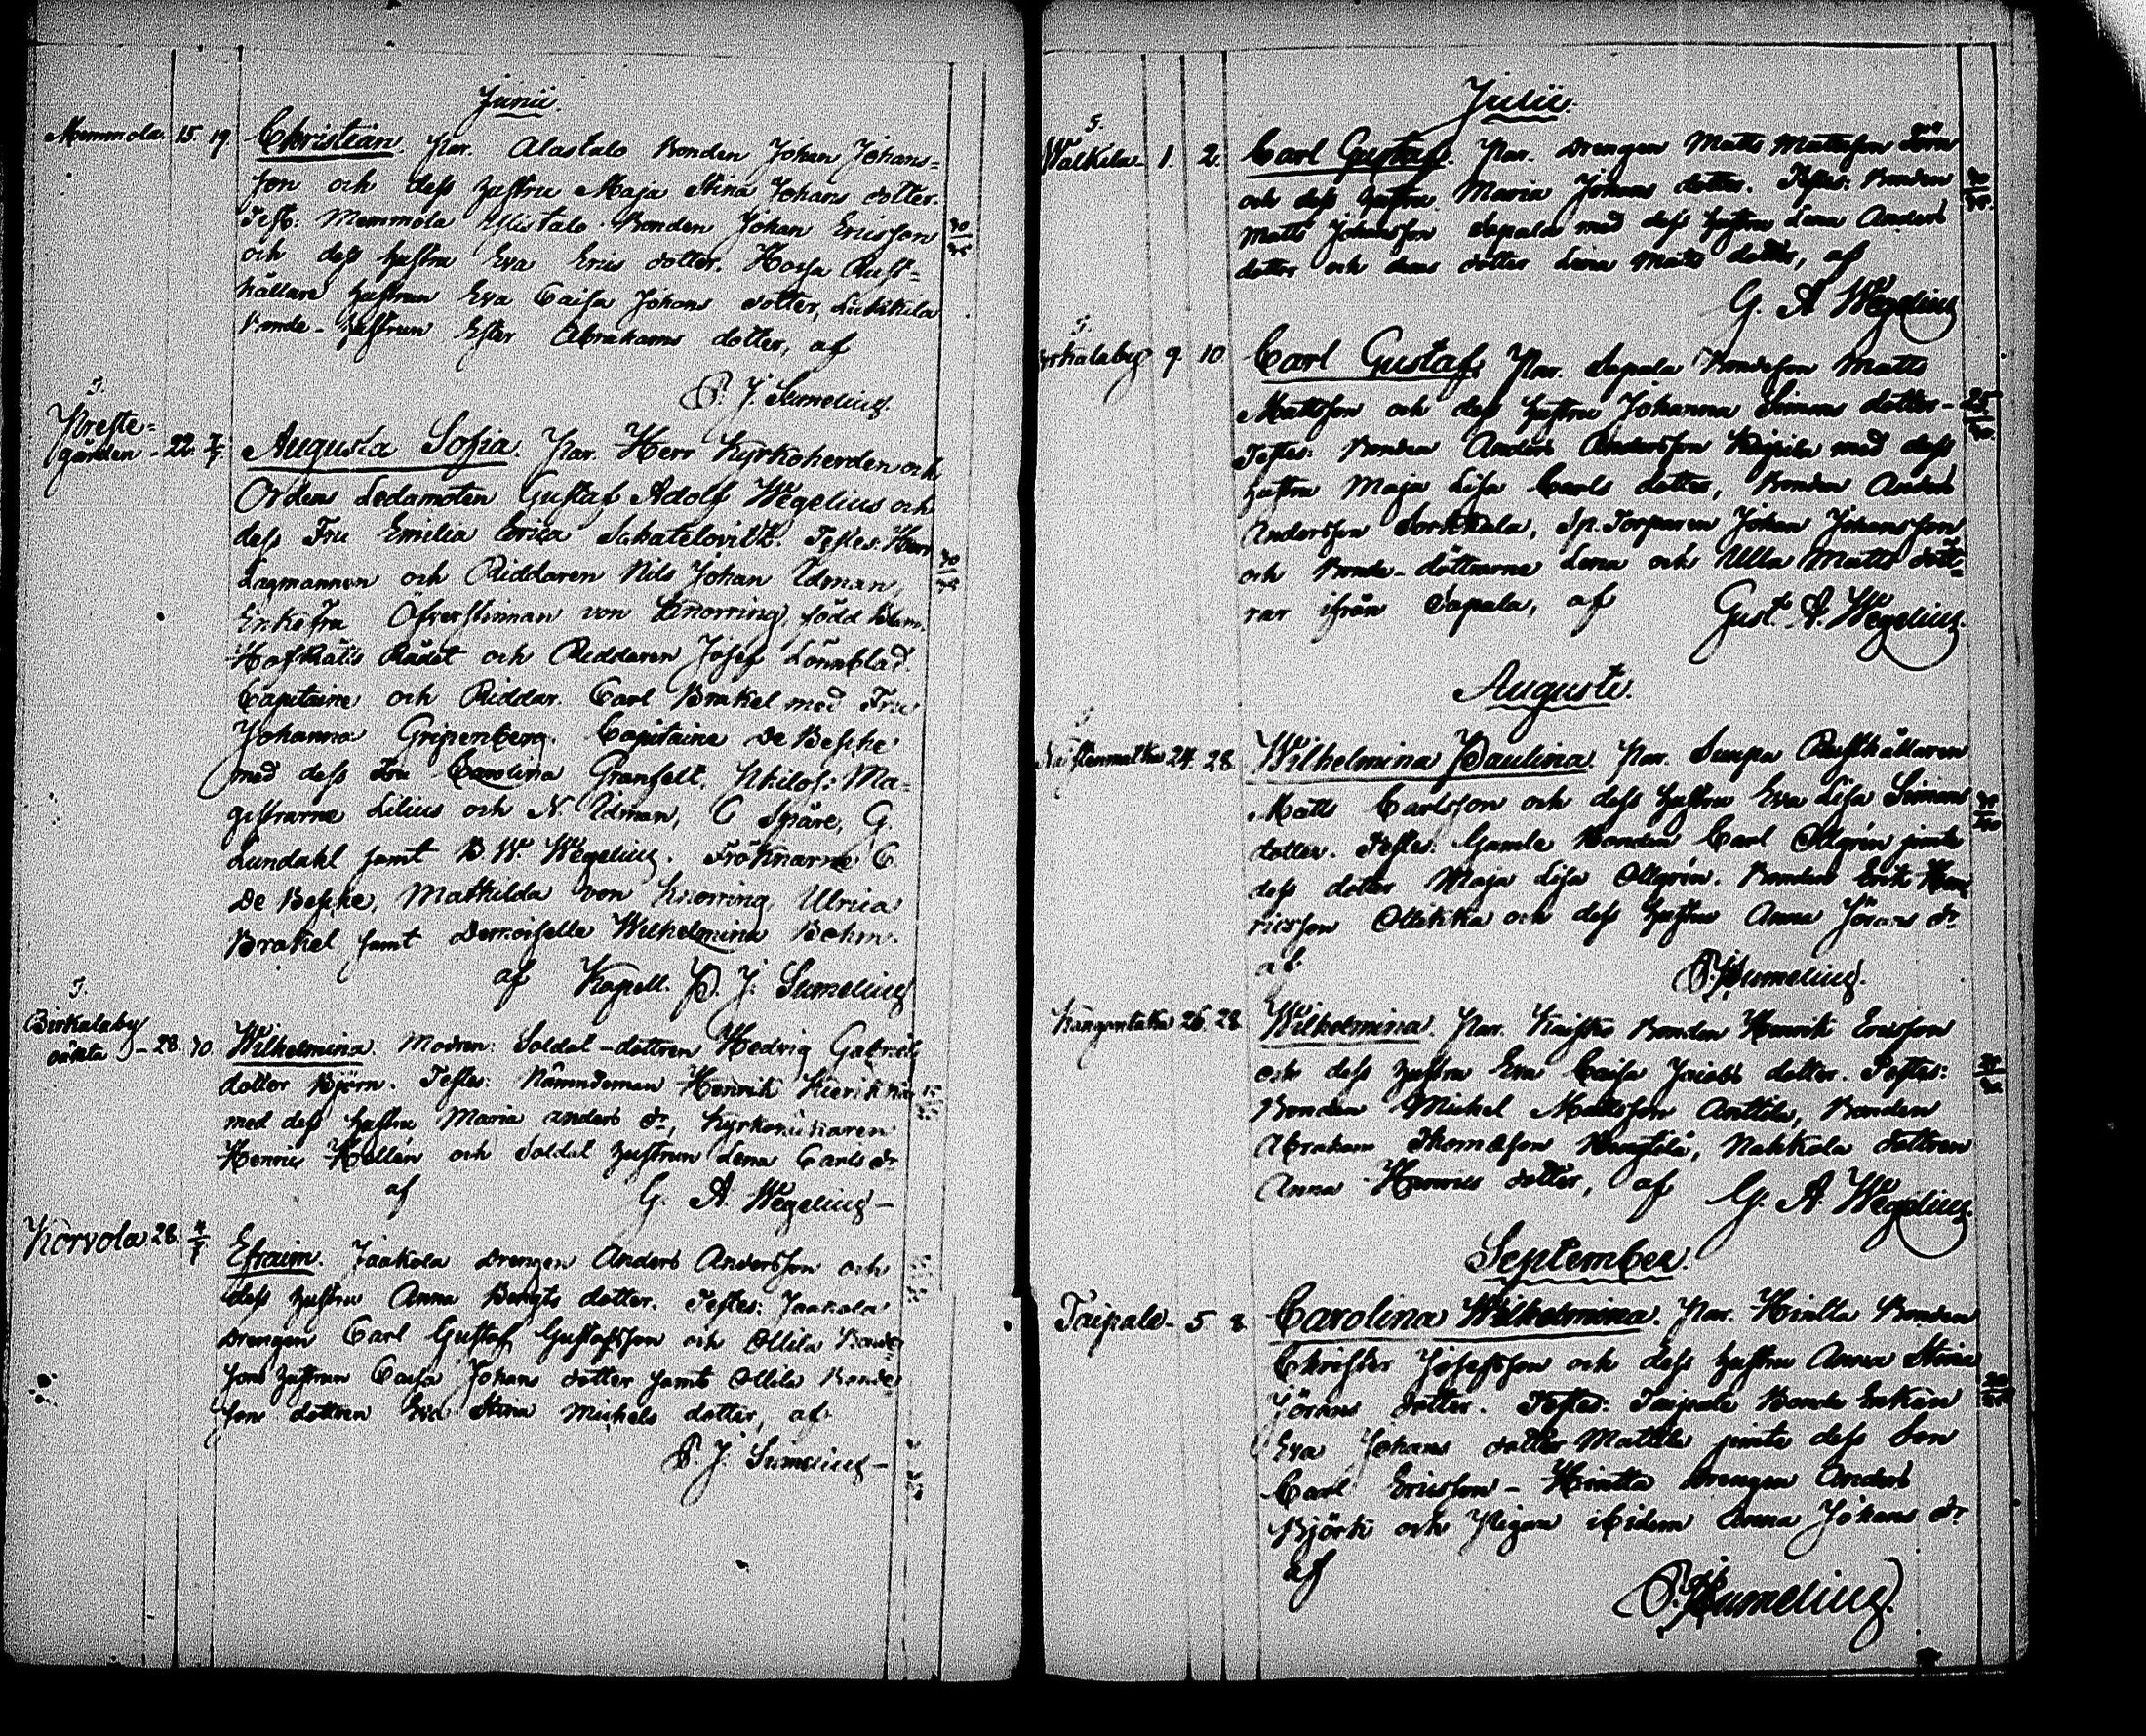 Junii.
Memmola. 15. 19. Christian. Par. Alastalo Bonden Johan Johans=
son och dess hustru Maja Stina Johans dotter.
Test: Memmola Ylistalo Bonden Johan Ericsson
och dess hustru Eva Erics dotter. Rust=
hållare hustrun Eva Caisa Johans dotter, Lukkila
Bonde-hustrun Ester Abrahams dotter, af
P. J. Sumelius.
Preste=
gården - 22. Augusta Sofia. Par. Herr Kyrkoherden och
Ordens Ledamoten Gustaf Adolf Wegelius och
dess Fru Emilia Erica Testes: Herr
Lagmannen och Riddaren Nils Johan Idman,
Enkefru Öfverstinnan von Knorring, född
HofRätts Rådet och Riddaren Josef Lönnblad.
Capitaine och Riddar. Carl Brakel med Fru
Johanna Gripenberg. Capitaine De Besche
med dess Fru Carolina Granfelt. Philos: Ma=
gistrarne Lilius och N. Idman, C Spåre, G.
Lundahl samt B. W. Wegelius. Fröknarne C.
De Besche, Mathilda von Knorring, Ulrica
Brakel samt Demoiselle Wilhelmina Bohm.
af Kapell. P. J. Sumelius
Birkalaby
oäkta - 28. 30. Wilhelmina. Modren: Soldat-dottren Hedvig Gabriels
dotter Björn. Testes: Nämndeman Henrik
med dess hustru Maria Anders dr, Kyrkoväktaren
Henric Hellén och Soldat hustrun Lena Carls dr
af G. A. Wegelius -
Korvola 28. Efraim. Jaakola drengen Anders Andersson och
dess hustru Anna Bengts dotter. Testes: Jaakola
drengen Carl Gustaf Gustafsson och Ollila Bonde
sons hustrun Caisa Johans dotter samt Ollila Bonde
son dottren Eva Stina Michels dotter, af
P. J. Sumelius -
Julii.
Walkila 1. 2. Carl Gustaf. Par. Drengen Matts Mattsson
och dess hustru Maria Johans dotter. Testes: Bonden
Matts Johansson Sapala med dess hustru Lena Anders
dotter och dess dotter Lena Matts dotter, af
G. A Wegelius
Birkalaby 9. 10 Carl Gustaf. Par. Sapala Bondeson Matts
Mattsson och dess hustru Johanna Simons dotter -
Testes: Bonden Anders Andersson med dess
hustru Maja Lisa Carls dotter, Bonden Anders
Andersson Sorkkala, Sp. Torparen Johan Johansson
och Bonde-döttrarne Lena och Ulla Matts dött=
rar ifrån Sapala, af Gust. A. Wegelius.
Augusti.
24. 28. Wilhelmina Paulina. Par. Rusthållaren
Matts Carlsson och dess hustru Eva Lisa Simons
dotter. Testes: Gamle Bonden Carl Ollgrén jemte
dess dotter Maja Lisa Ollgrén. Bonden Erik Hen
ricsson Ollikka och dess hustru Anna Jörans dr.
af P. J. Sumelius.
Kangantaka 26. 28. Wilhelmina. Par. Bonden Henrik Ericsson
och dess hustru Eva Caisa Jacobs dotter. Testes:
Bonden Michel Mattsson Anttila, Bonden
Abraham Thomasson Nakkola dottren
Anna Henrics dotter, af G. A Wegelius.
September.
Taipale - 5 8. Carolina Wilhelmina. Par. Hintta Bonden
Christer Josefsson och dess hustru Anna Stina
Jörans dotter. Testes: Taipale Bonde Enkan
Eva Johans dotter Mattila jemte dess Son
Carl Ericsson - Hintta drengen Anders
Björk och Pigan ibidem Anna Johans dr
af
P. J. Sumelius.